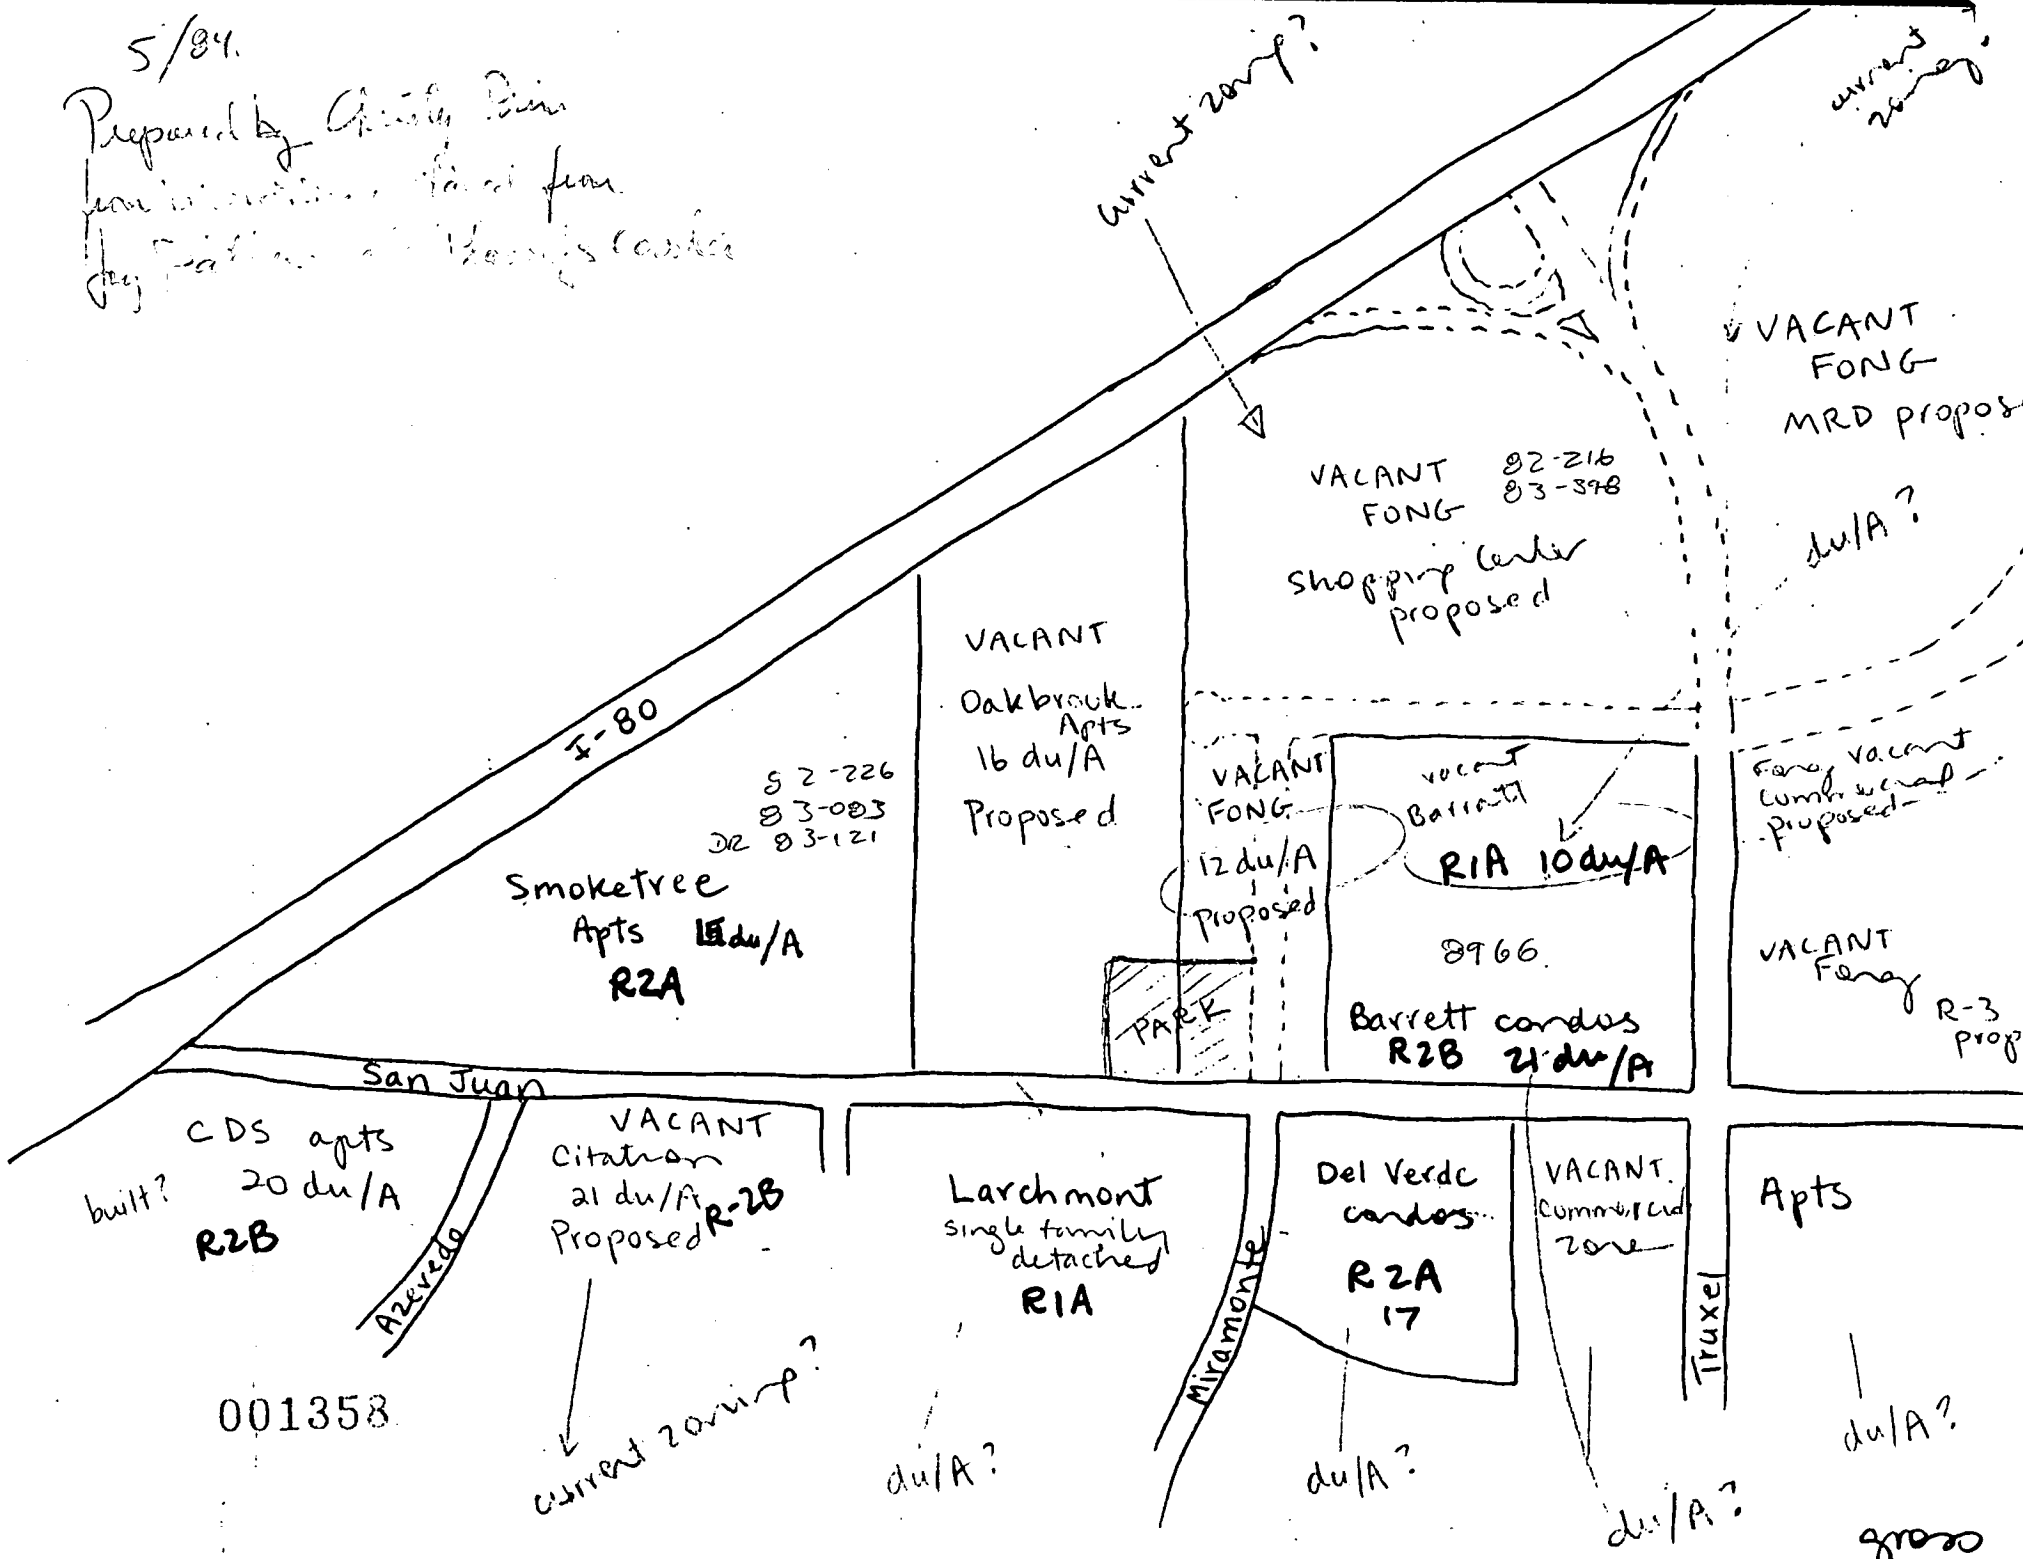 5/84.
Prepared by
from
current zoning?
current
zoning?
VACANT
FONG
MRD propos
du/A?
VACANT 82-216
FONG 83-398
Shopping Center
proposed
VACANT
Oakbrook
Apts
16 du/A
Proposed
I-80
82-226
83-083
DR 83-121
Smoketree
Apts 15 du/A
R2A
VACANT
FONG
12 du/A
proposed
vacant
Barratt
R1A 10 du/A
8966
Barrett condos
R2B 21 du/A
Fong vacant
commercial
proposed
VACANT
Fong
R-3
prop
PARK
San Juan
CDS apts
built? 20 du/A
R2B
Azevedo
VACANT
Citation
21 du/A R-2B
Proposed
current zoning?
Larchmont
single family
detached
R1A
du/A?
Miramonte
Del Verde
condos
R2A
17
du/A?
VACANT.
Commercial
zone
du/A?
Truxel
Apts
du/A?
001358
gross